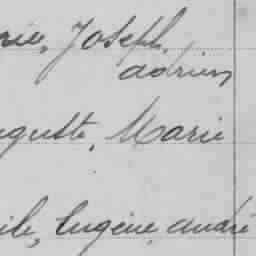 rie, Joseph.
adrien
uguste, Marie
ile, Eugène, andré